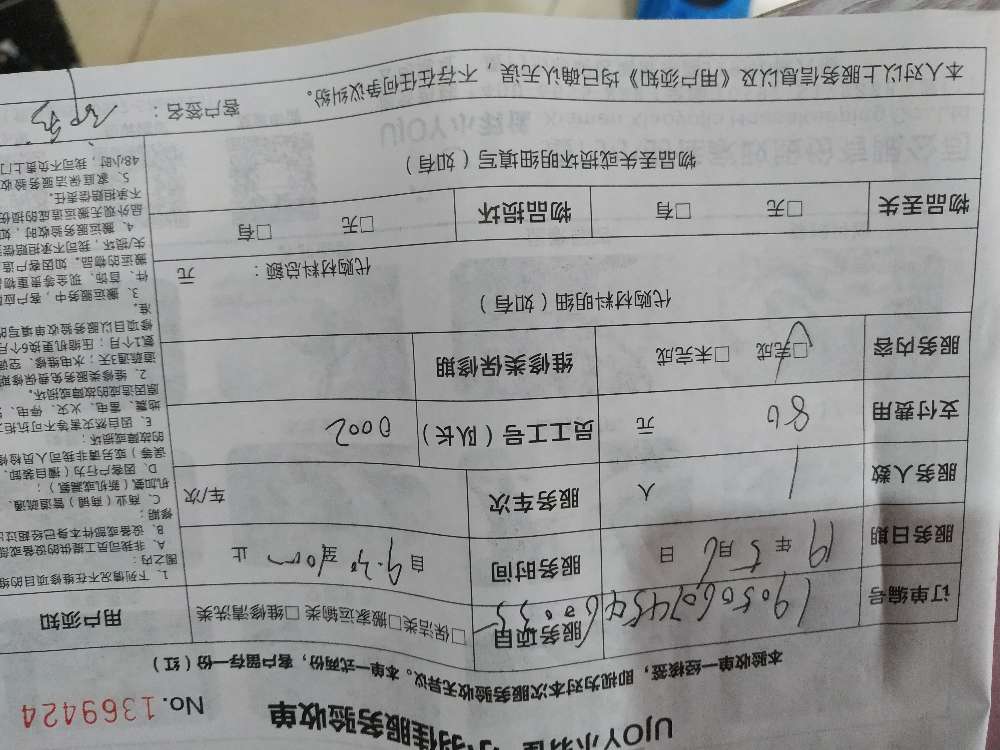 UJOY小羽佳服务验收单
No. 1369424
本验收单一经核签，即视为对本次服务验收无异议。本单一式两份，客户留存一份（红）
订单编号
服务项目
□保洁类□搬家运输类 □维修清洗类
用户须知
服务日期 19 年 5 月 6 日
服务时间 自 9:30 至 止
服务人数 1 人
服务车次 车/次
支付费用 80 元
员工工号（队长） 0002
服务内容 □完成 □未完成
维修类保修期
代购材料明细（如有）
代购材料总额： 元
物品丢失 □无 □有
物品损坏 □无 □有
物品丢失或损坏明细填写（如有）
本人对以上服务信息以及《用户须知》均已确认无误，不存在任何争议纠纷。
客户签名：
1. 下列情况不在维修项目的
围之内：
A. 非我司员工提供的设备或
B. 设备或部件本身已经超过
修期；
C. 商业（商铺）管道疏通、
机加氨（新机或漏氨）；
D. 因客户行为（擅自装卸、
误等）或另请非我司人员检修
的故障或损坏；
E. 因自然灾害等不可抗拒
地震、雷电、火灾、停电、
原因造成的故障或损坏。
2. 维修类服务免费保修期
道疏通3天；水电维修、空调
氨1个月；压缩机更换6个月
修项目以服务验收单填写的
准。
3. 搬运服务中，客户应
件、首饰、现金等贵重物品
搬运的物品。如因客户
失/损坏，我司不承担赔偿
4. 搬运服务验收时，如
品外观无搬运造成的损伤
不承担赔偿责任。
5. 家庭保洁服务验收
48小时，我司不负责上门